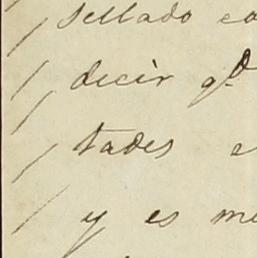 sellado co
decir qd
tades e
y es me